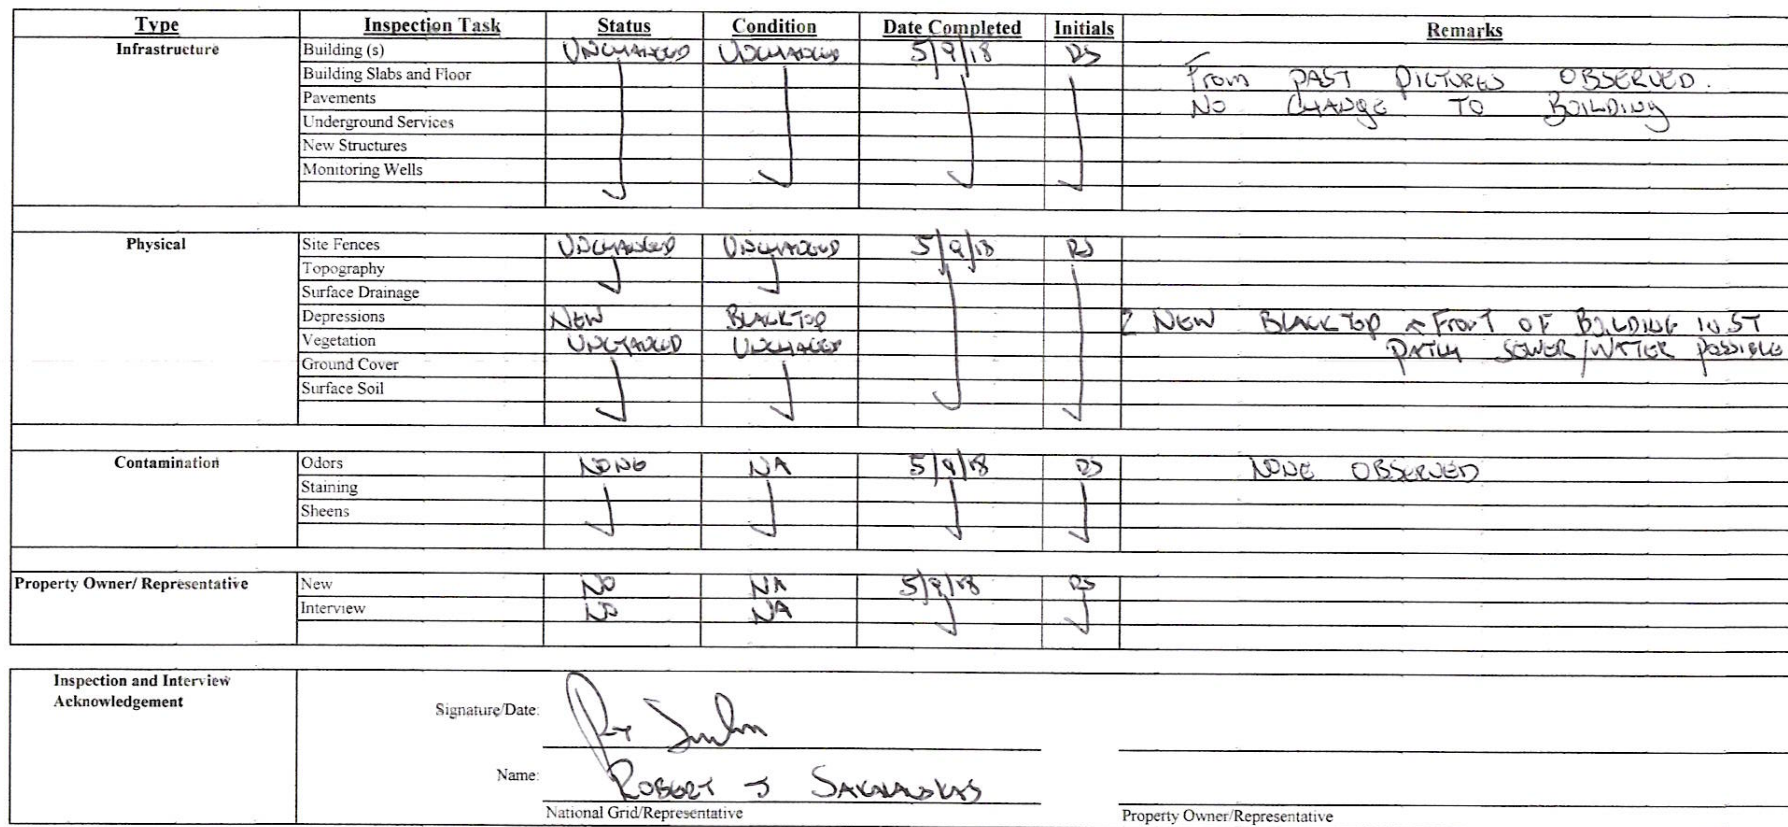 Type Inspection Task Status Condition Date Completed Initials Remarks
Infrastructure Building (s) UNCHANGED UNCHANGED 5/9/18 RS
Building Slabs and Floor From PAST PICTURES OBSERVED.
Pavements NO CHANGE TO BUILDING
Underground Services
New Structures
Monitoring Wells
Physical Site Fences UNCHANGED UNCHANGED 5/9/18 RS
Topography
Surface Drainage
Depressions NEW BLACKTOP NEW BLACKTOP FRONT OF BUILDING IN ST
Vegetation UNCHANGED UNCHANGED PATCH SEWER/WATER POSSIBLE
Ground Cover
Surface Soil
Contamination Odors NONE NA 5/9/18 RS NONE OBSERVED
Staining
Sheens
Property Owner/ Representative New NO NA 5/9/18 RS
Interview NO NA
Inspection and Interview
Acknowledgement
Signature/Date:
Name: ROBERT J
National Grid/Representative Property Owner/Representative